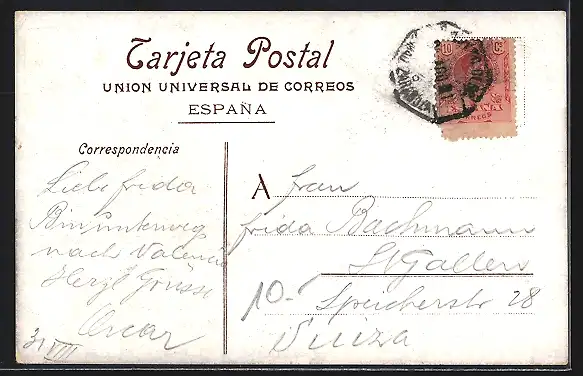 Tarjeta Postal
UNION UNIVERSAL DE CORREOS
ESPAÑA
10 Cs
ESPAÑA
CORREOS
Correspondencia
Liebe Frida
Bin unterweg
nach Valencia
Herzl Grüsse
Oscar
31 VIII
A Frau
Frida Bachmann
St Gallen
10- Speicherstr 28
Suiza